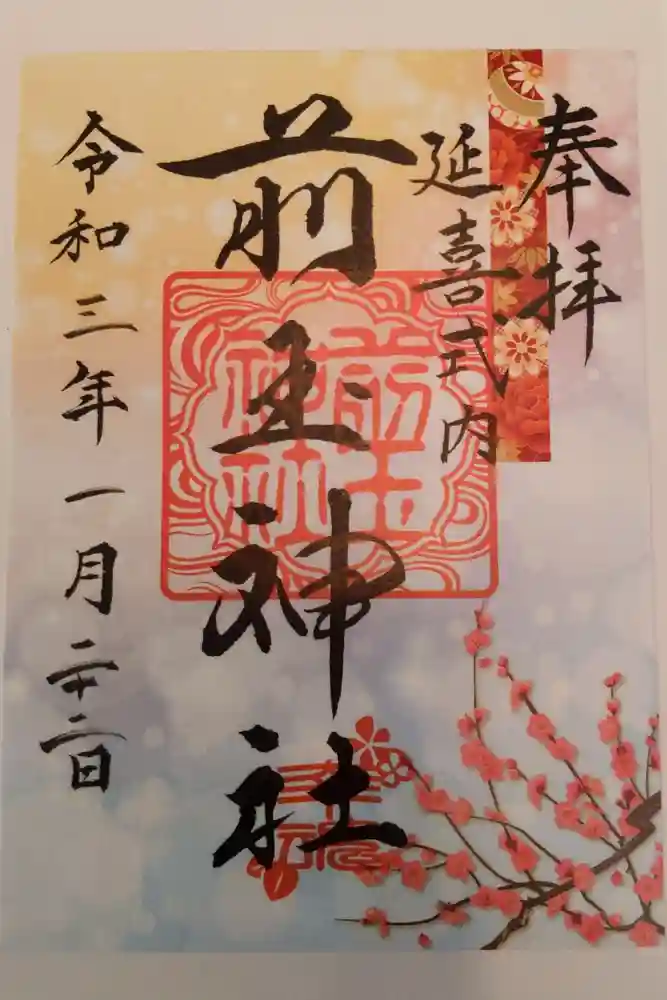 奉拝
延喜式内
前玉神社
前玉神社
令和三年一月二十二日